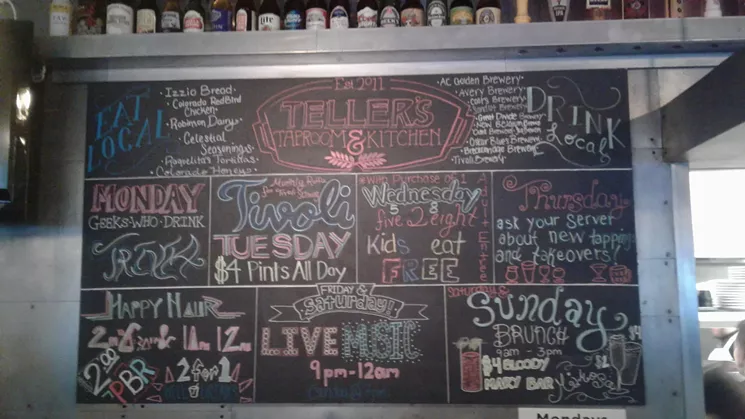 EAT
LOCAL
Izzio Bread
Colorado RedBird
Chicken
Robinson Dairy
Celestial
Seasonings
Raquelitas Tortillas
Colorado Honey
Est 2011
TELLER'S
TAPROOM & KITCHEN
AC Golden Brewery
Avery Brewery
Great Divide Brewery
New Belgium
Oskar Blues Brewery
Breckenridge Brewery
Tivoli Brewery
DRINK
Local
MONDAY
GEEKS-WHO-DRINK
TRIVIA
Tivoli
TUESDAY
$4 Pints All Day
With Purchase of 1
Adult Entree
Wednesday
5 8
five 2 eight
Kids eat
FREE
Thursday
ask your server
about new tappings
and takeovers!
HAPPY HOUR
2pm 6pm & 10pm 12am
2.00
PBR
2 for 1
FRIDAY &
Saturday!
LIVE MUSIC
9pm-12am
Saturday &
Sunday
BRUNCH
9am - 3pm
$4 BLOODY
MARY BAR
$4
$2
Mimosas
Mondays